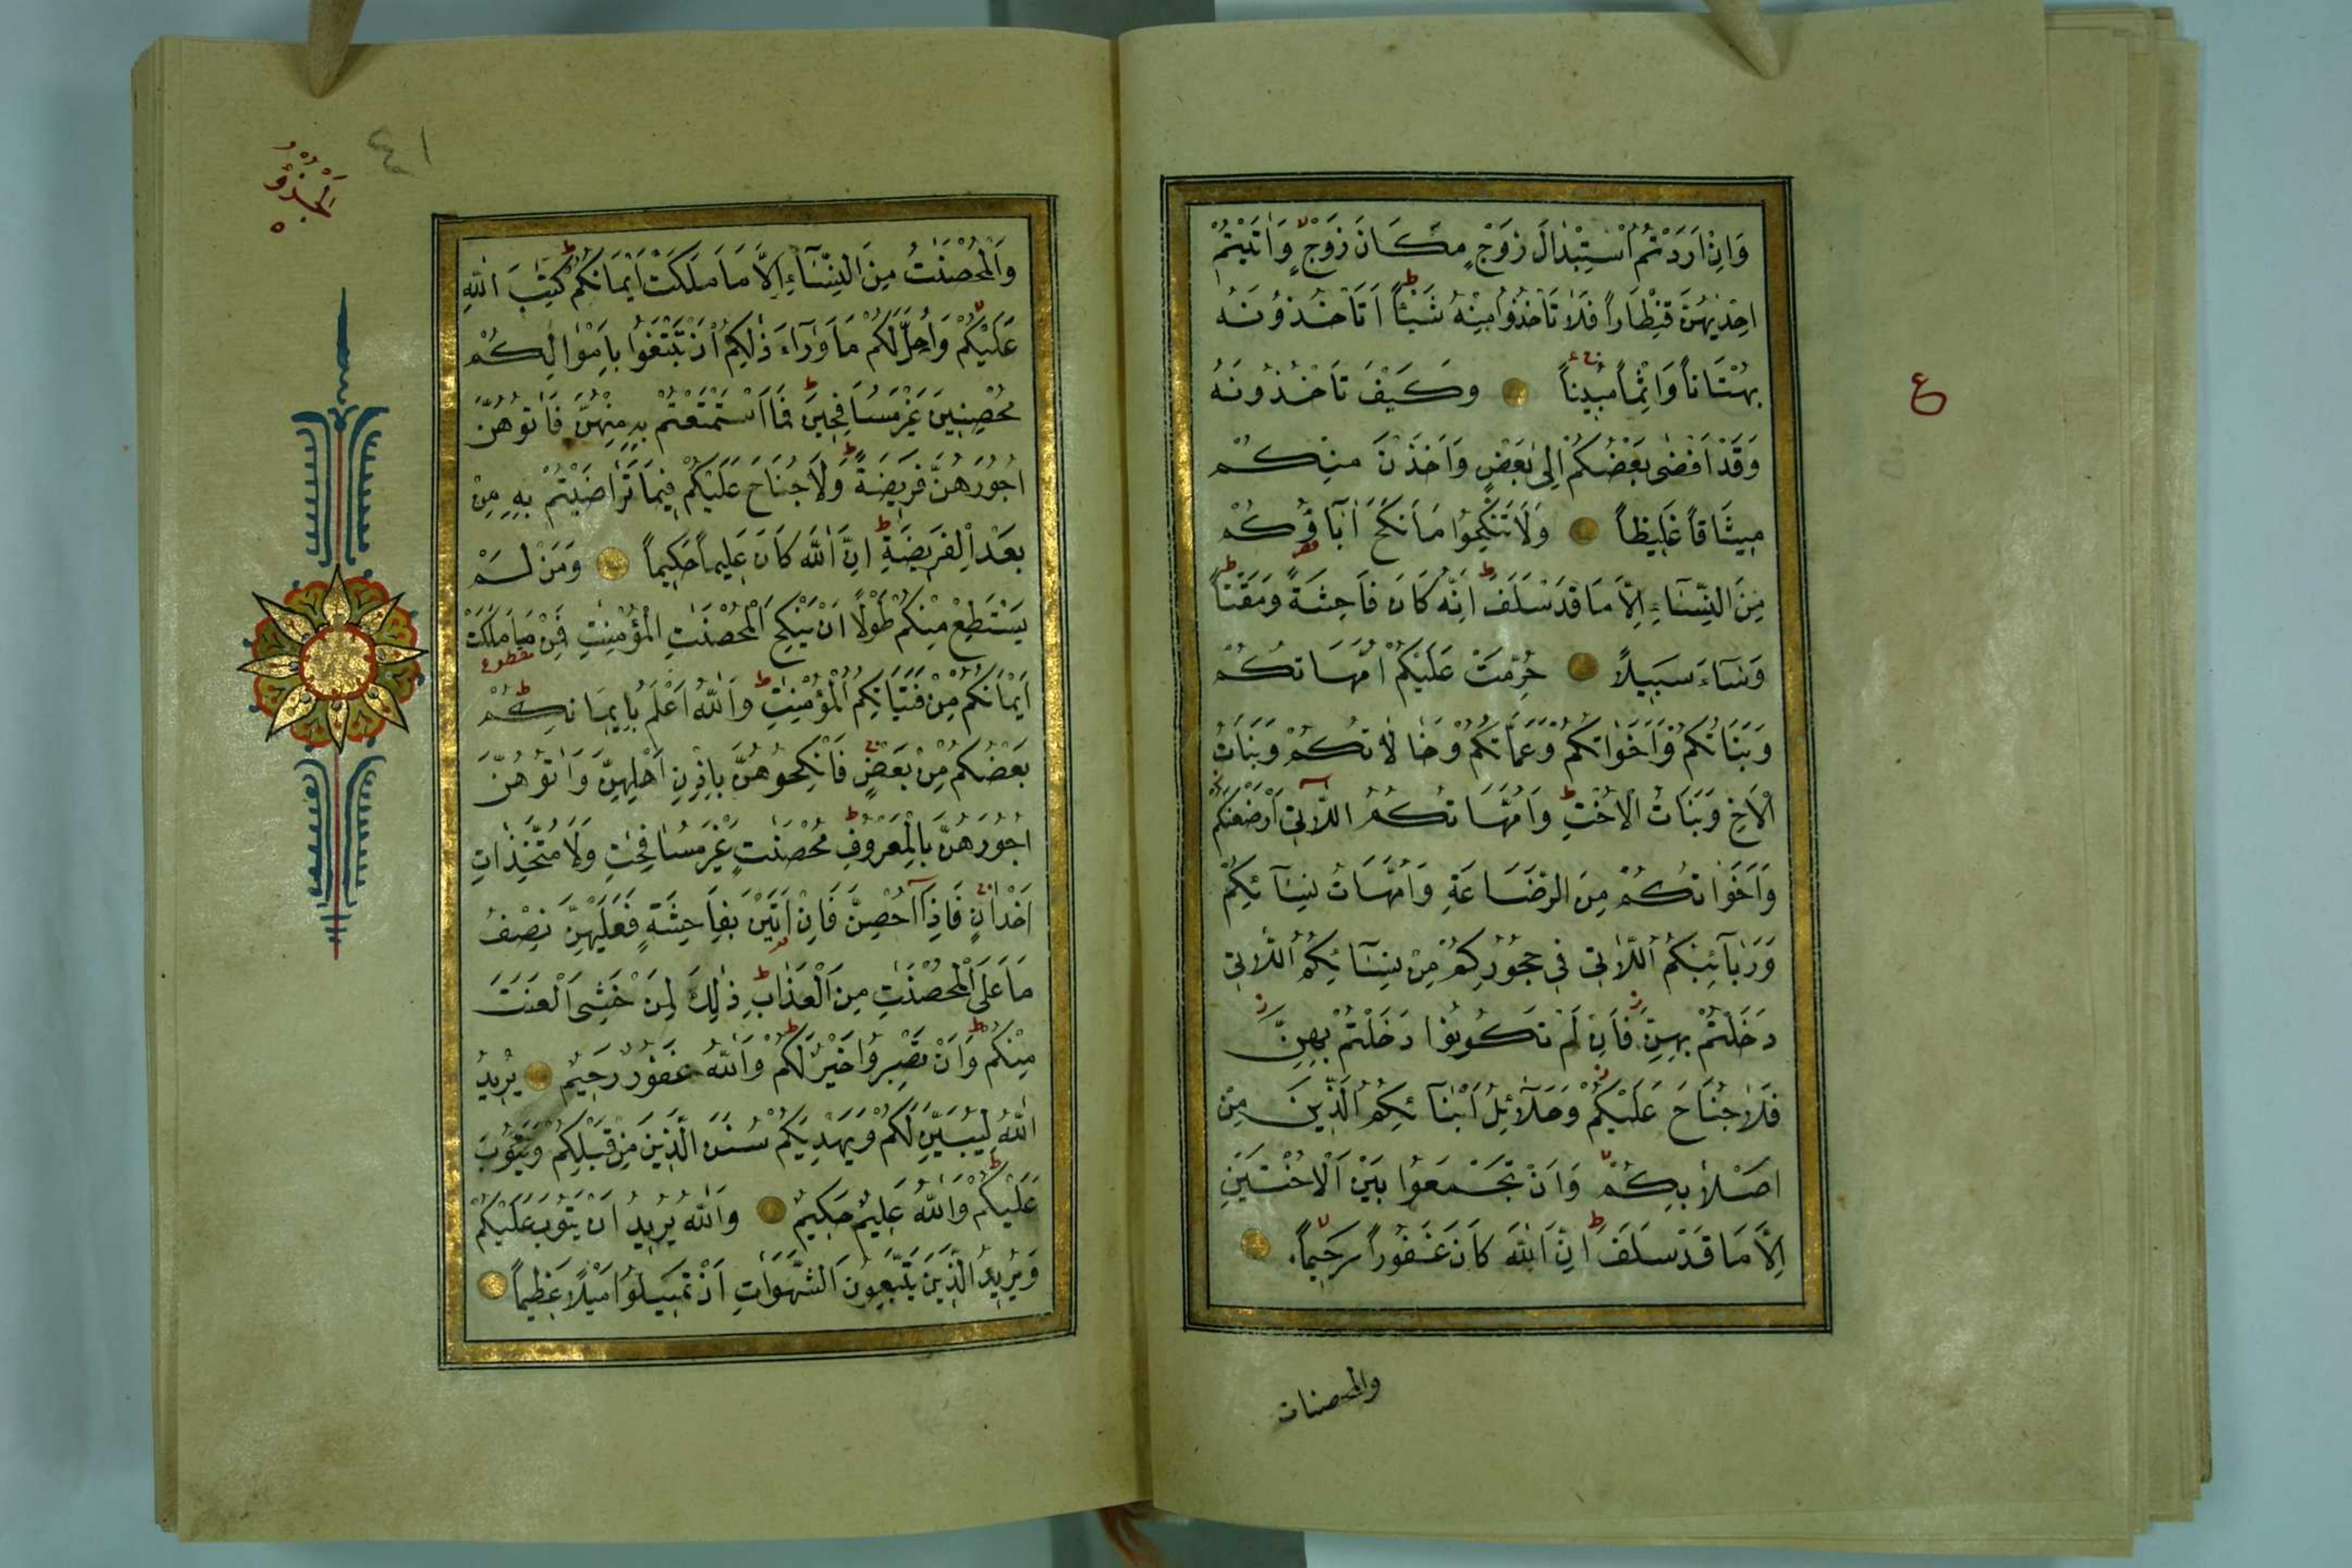 وَاِنْ اَرَدْتُمُ اسْتِبْدَالَ زَوْجٍ مَكَانَ زَوْجٍ وَاٰتَيْتُمْ
اِحْدٰيهُنَّ قِنْطَاراً فَلَا تَأْخُذُوا مِنْهُ شَيْئاً اَتَأْخُذُونَهُ
بُهْتَاناً وَاِثْماً مُبِيناً وَكَيْفَ تَأْخُذُونَهُ
وَقَدْ اَفْضٰى بَعْضُكُمْ اِلٰى بَعْضٍ وَاَخَذْنَ مِنْكُمْ
مِيثَاقاً غَلِيظاً وَلَا تَنْكِحُوا مَا نَكَحَ اٰبَآؤُكُمْ
مِنَ النِّسَآءِ اِلَّا مَا قَدْ سَلَفَ اِنَّهُ كَانَ فَاحِشَةً وَمَقْتاً
وَسَآءَ سَبِيلاً حُرِّمَتْ عَلَيْكُمْ اُمَّهَاتُكُمْ
وَبَنَاتُكُمْ وَاَخَوَاتُكُمْ وَعَمَّاتُكُمْ وَخَالَاتُكُمْ وَبَنَاتُ
الْاَخِ وَبَنَاتُ الْاُخْتِ وَاُمَّهَاتُكُمُ اللَّاتِي اَرْضَعْنَكُمْ
وَاَخَوَاتُكُمْ مِنَ الرَّضَاعَةِ وَاُمَّهَاتُ نِسَآئِكُمْ
وَرَبَآئِبُكُمُ اللَّاتِي فِي حُجُورِكُمْ مِنْ نِسَآئِكُمُ اللَّاتِي
دَخَلْتُمْ بِهِنَّ فَاِنْ لَمْ تَكُونُوا دَخَلْتُمْ بِهِنَّ
فَلَا جُنَاحَ عَلَيْكُمْ وَحَلَآئِلُ اَبْنَآئِكُمُ الَّذِينَ مِنْ
اَصْلَابِكُمْ وَاَنْ تَجْمَعُوا بَيْنَ الْاُخْتَيْنِ
اِلَّا مَا قَدْ سَلَفَ اِنَّ اللّٰهَ كَانَ غَفُوراً رَحِيماً
والمحصنات
ع
٤١
اَلْجُزْؤُ
٥
وَالْمُحْصَنٰتُ مِنَ النِّسَآءِ اِلَّا مَا مَلَكَتْ اَيْمَانُكُمْ كِتٰبَ اللّٰهِ
عَلَيْكُمْ وَاُحِلَّ لَكُمْ مَا وَرَآءَ ذٰلِكُمْ اَنْ تَبْتَغُوا بِاَمْوَالِكُمْ
مُحْصِنِينَ غَيْرَ مُسَافِحِينَ فَمَا اسْتَمْتَعْتُمْ بِهِ مِنْهُنَّ فَاٰتُوهُنَّ
اُجُورَهُنَّ فَرِيضَةً وَلَا جُنَاحَ عَلَيْكُمْ فِيمَا تَرَاضَيْتُمْ بِهِ مِنْ
بَعْدِ الْفَرِيضَةِ اِنَّ اللّٰهَ كَانَ عَلِيماً حَكِيماً وَمَنْ لَمْ
يَسْتَطِعْ مِنْكُمْ طَوْلًا اَنْ يَنْكِحَ الْمُحْصَنٰتِ الْمُؤْمِنٰتِ فَمِنْ مَا مَلَكَتْ
مقطوع
اَيْمَانُكُمْ مِنْ فَتَيَاتِكُمُ الْمُؤْمِنٰتِ وَاللّٰهُ اَعْلَمُ بِاِيمَانِكُمْ
بَعْضُكُمْ مِنْ بَعْضٍ فَانْكِحُوهُنَّ بِاِذْنِ اَهْلِهِنَّ وَاٰتُوهُنَّ
اُجُورَهُنَّ بِالْمَعْرُوفِ مُحْصَنٰتٍ غَيْرَ مُسَافِحٰتٍ وَلَا مُتَّخِذَاتِ
اَخْدَانٍ فَاِذَآ اُحْصِنَّ فَاِنْ اَتَيْنَ بِفَاحِشَةٍ فَعَلَيْهِنَّ نِصْفُ
مَا عَلَى الْمُحْصَنٰتِ مِنَ الْعَذَابِ ذٰلِكَ لِمَنْ خَشِيَ الْعَنَتَ
مِنْكُمْ وَاَنْ تَصْبِرُوا خَيْرٌ لَكُمْ وَاللّٰهُ غَفُورٌ رَحِيمٌ يُرِيدُ
اللّٰهُ لِيُبَيِّنَ لَكُمْ وَيَهْدِيَكُمْ سُنَنَ الَّذِينَ مِنْ قَبْلِكُمْ وَيَتُوبَ
عَلَيْكُمْ وَاللّٰهُ عَلِيمٌ حَكِيمٌ وَاللّٰهُ يُرِيدُ اَنْ يَتُوبَ عَلَيْكُمْ
وَيُرِيدُ الَّذِينَ يَتَّبِعُونَ الشَّهَوَاتِ اَنْ تَمِيلُوا مَيْلًا عَظِيماً